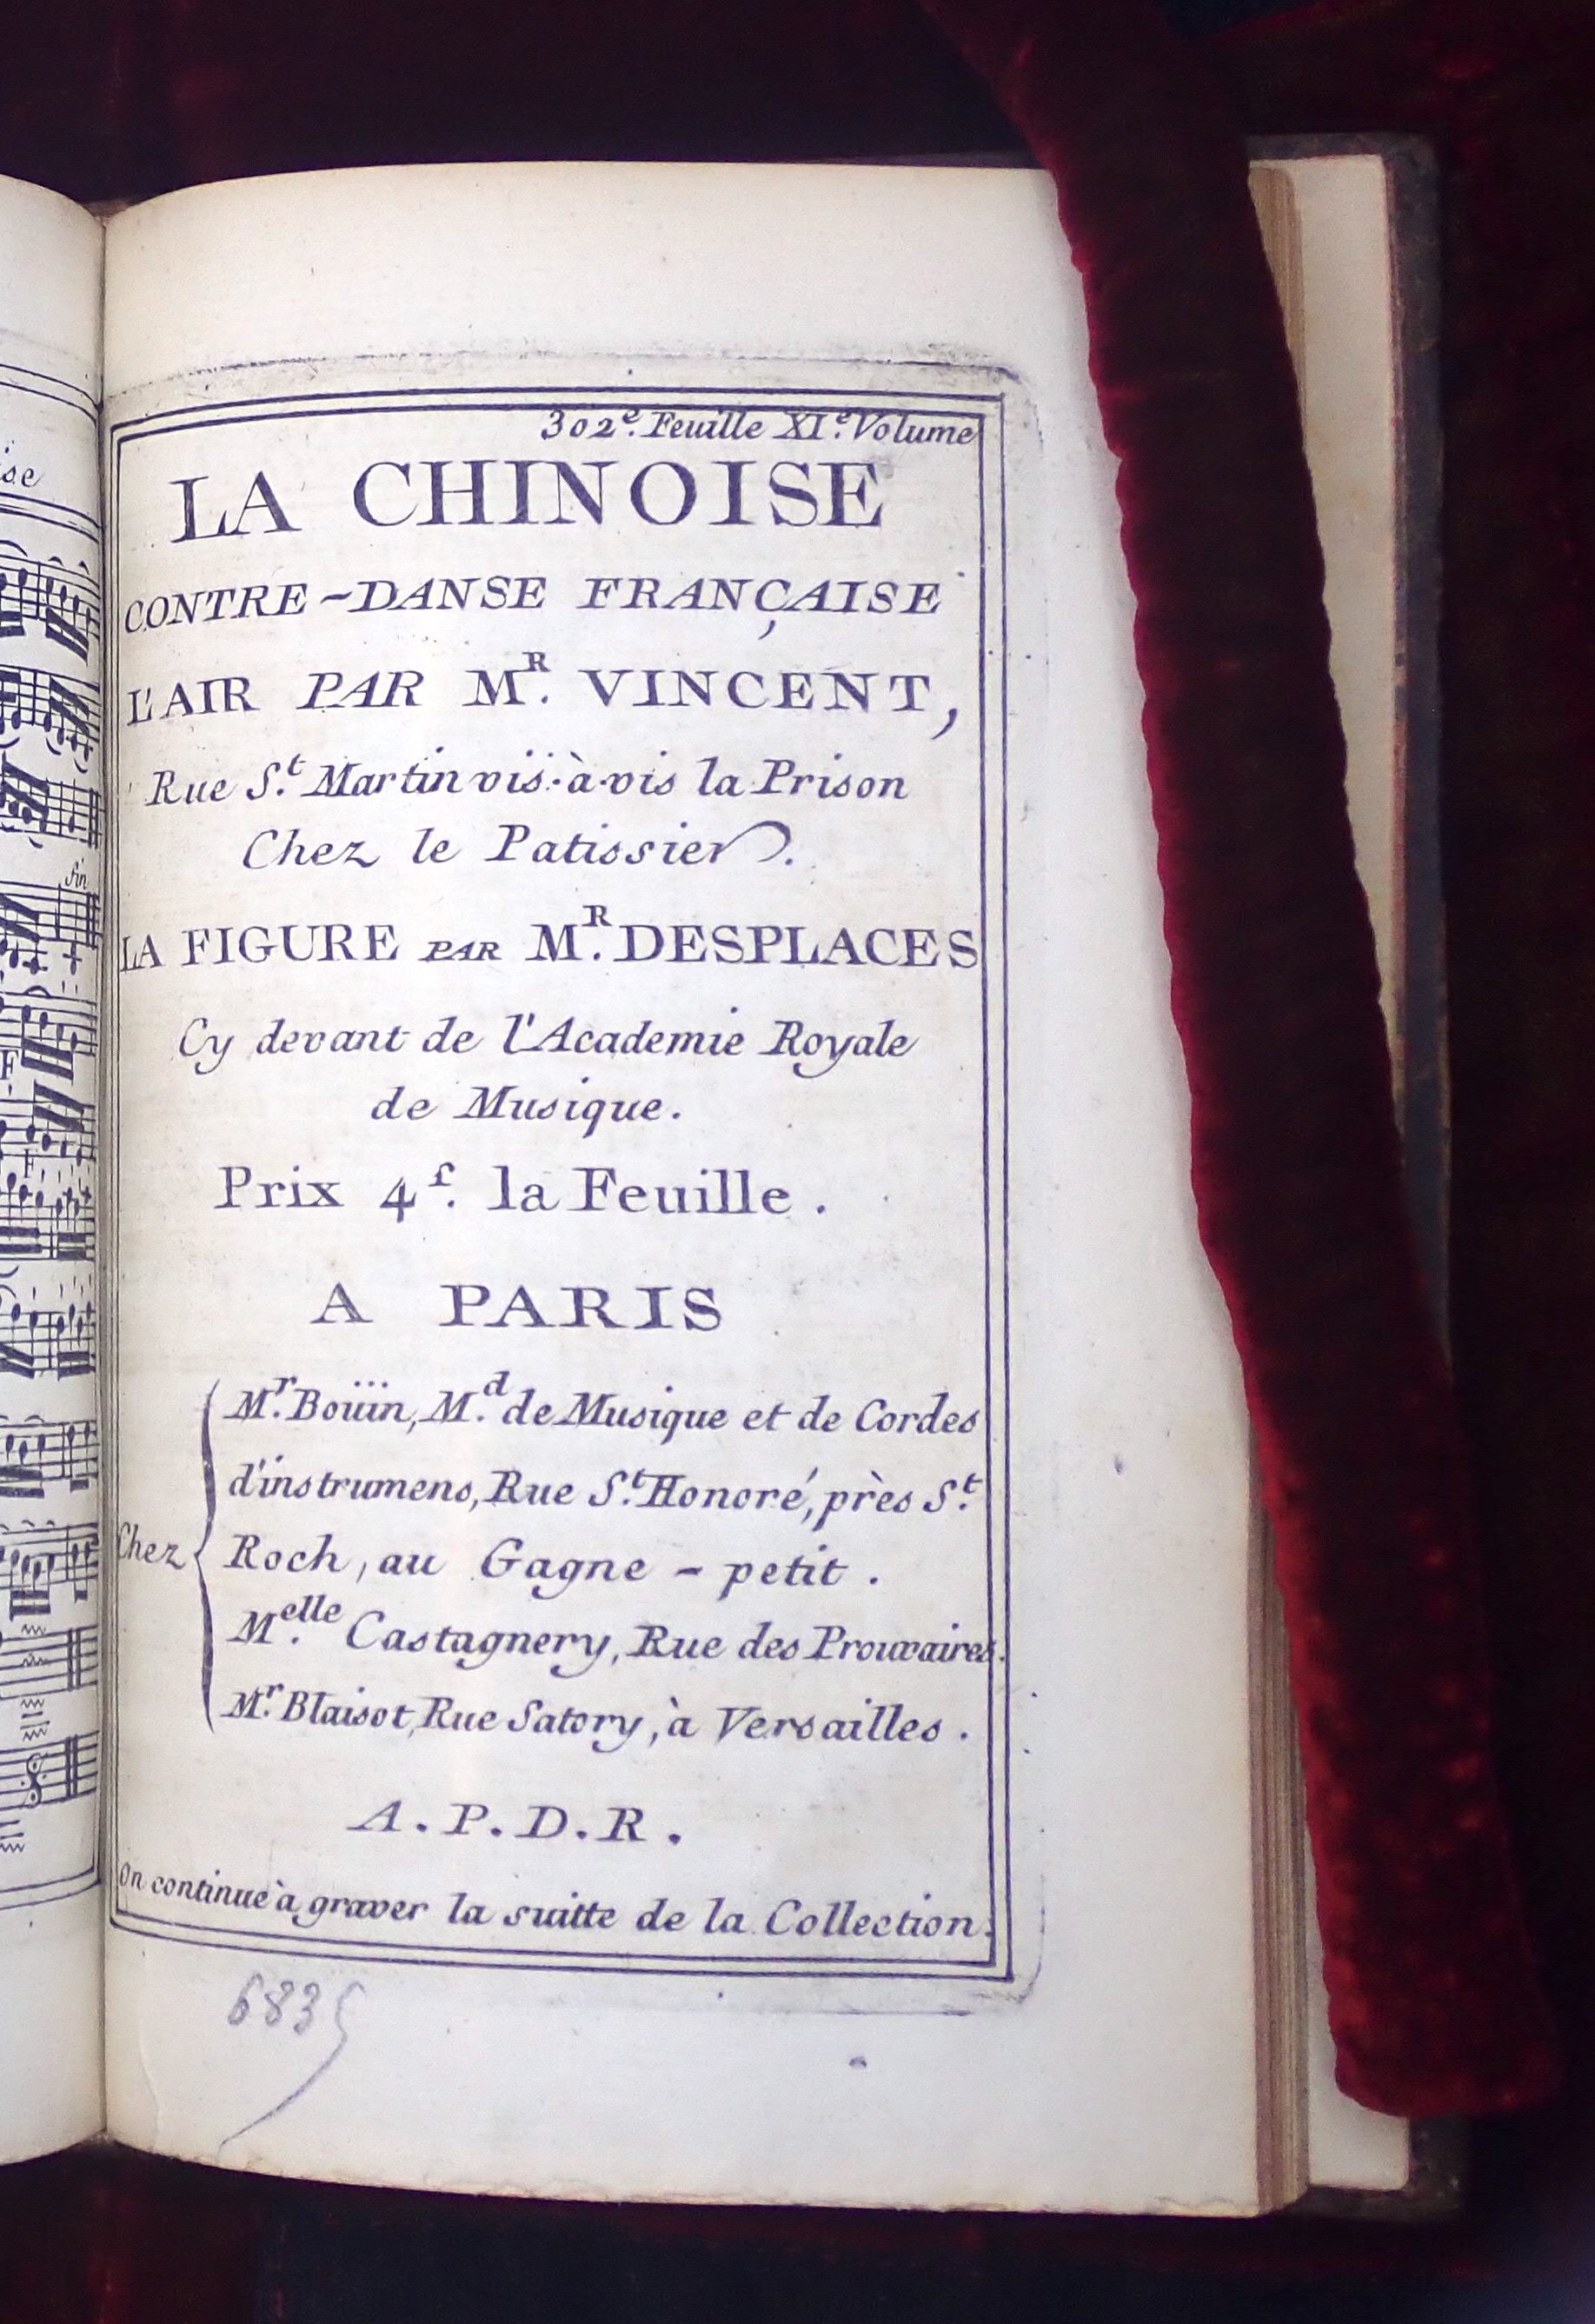 302e. Feuille XIe. Volume
LA CHINOISE
CONTRE-DANSE FRANÇAISE
L'AIR PAR MR. VINCENT,
Rue St. Martin vis-à-vis la Prison
Chez le Patissier.
LA FIGURE PAR MR. DESPLACES
Cy devant de l'Academie Royale
de Musique.
Prix 4f. la Feuille.
A PARIS
Chez
Mr. Boüin, Md. de Musique et de Cordes
d'instrumens, Rue St. Honoré, près St.
Roch, au Gagne-petit.
Melle. Castagnery, Rue des Prouvaires.
Mr. Blaisot, Rue Satory, à Versailles.
A.P.D.R.
On continue à graver la suitte de la Collection.
fin